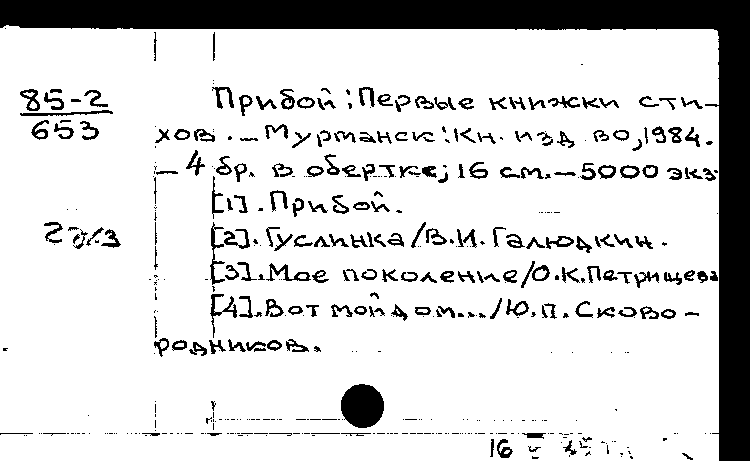 85-2
653
2 экз
Прибой : Первые книжки сти-
хов. – Мурманск : Кн. изд во, 1984.
– 4 бр. в обертке; 16 см. – 5000 экз
[1]. Прибой.
[2]. Гуслинка / В.И. Галюдкин.
[3]. Мое поколение / О.К. Петрищева
[4]. Вот мой дом... / Ю.П. Сково-
родников.
16